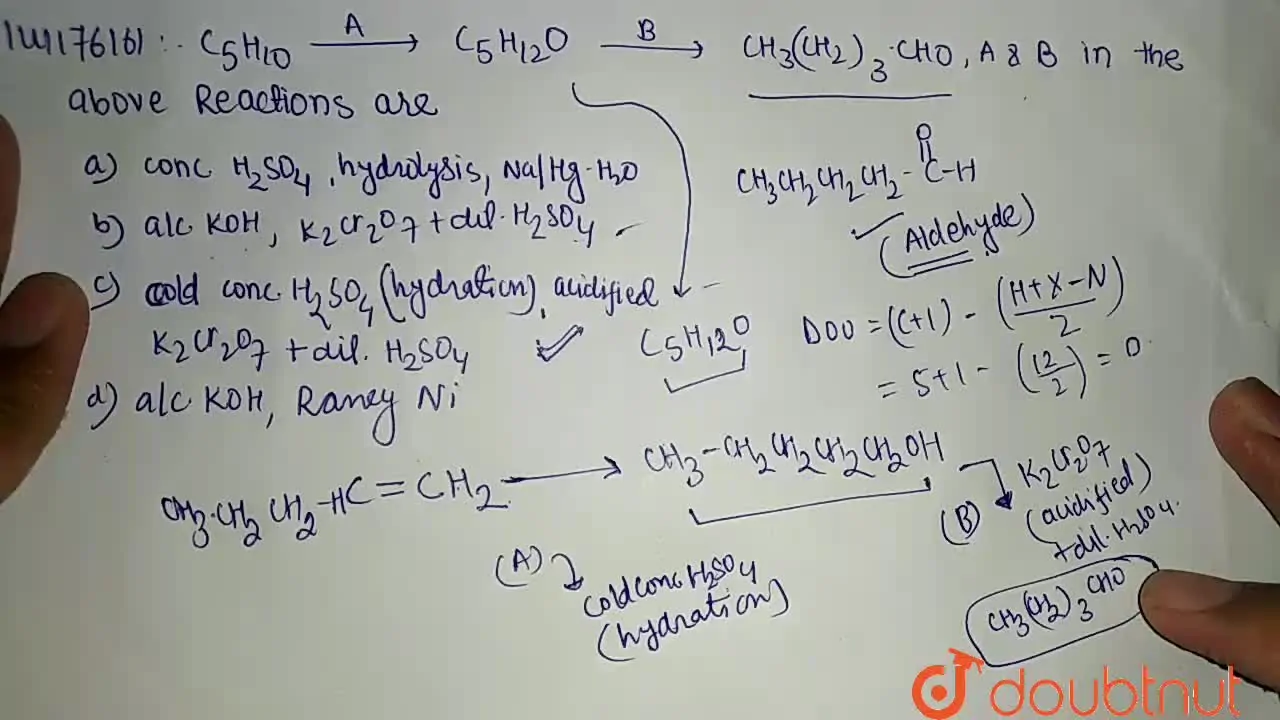 1W176161:. C5H10 —A→ C5H12O —B→ CH3(CH2)3·CHO, A & B in the
above Reactions are
a) conc H2SO4, hydrolysis, Na/Hg·H2O
b) alc KOH, K2Cr2O7 + dil. H2SO4
c) cold conc. H2SO4 (hydration), acidified
K2Cr2O7 + dil. H2SO4 ✓
d) alc KOH, Raney Ni
O
||
CH3CH2CH2CH2-C-H
✓ (Aldehyde)
C5H12O
DOU = (C+1) - (H+X-N/2)
= 5+1 - (12/2) = 0
CH3·CH2CH2-HC=CH2 → CH3-CH2CH2CH2CH2OH
(A) cold conc H2SO4
(hydration)
(B) K2Cr2O7
(acidified)
+dil. H2SO4
CH3(CH2)3CHO
doubtnut